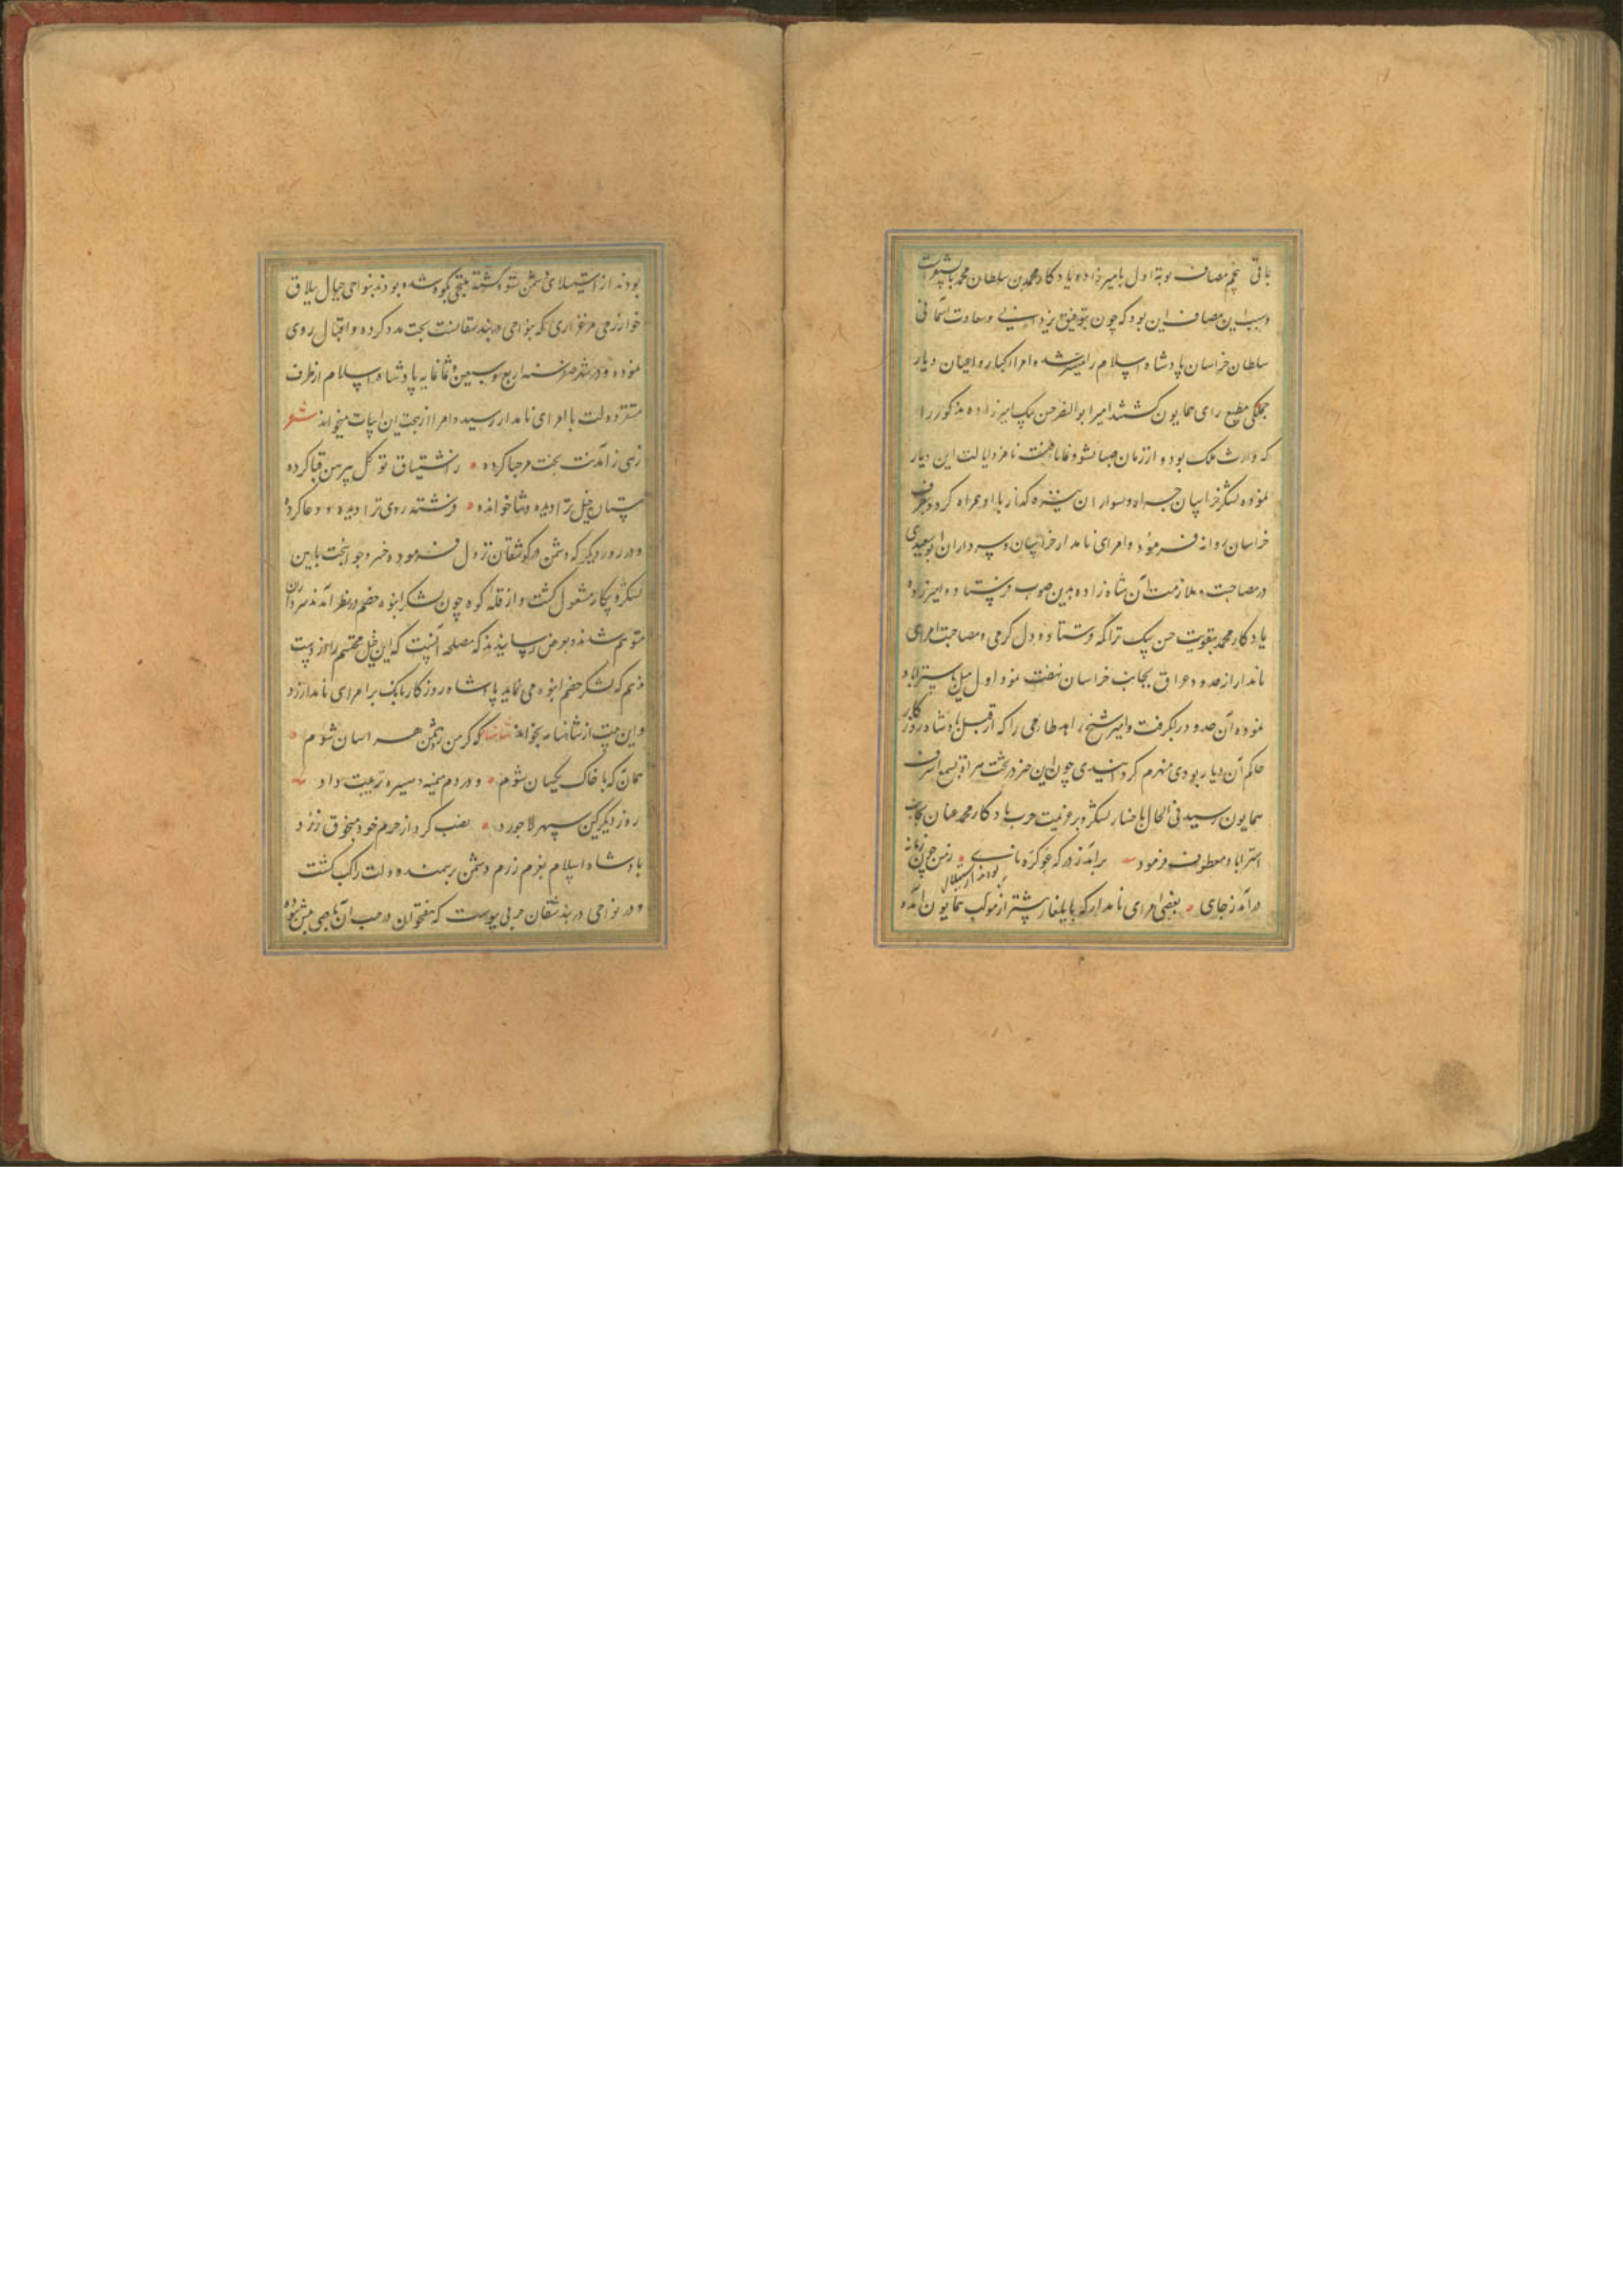 باقی پنجم مصاف نوبة اول با میرزاده یادکار محمد بن سلطان محمد بایسنقرست
و سبب این مصاف این بود که چون بتوفیق یزدانی و سعادت آسمانی
سلطان خراسان پادشاه اسلام را میسر شد و امرا کبار و اعیان دیار
جملکی مطیع رای همایون کشتند امیر ابو النصر حسن بیک امیرزاده مذکور را
که وارث ملک بوده از زمان صبا نامزد ایالت این دیار
نموده لشکر خراسان جراه و سواران نیزه کذار با او همراه کرد و بطرف
خراسان روانه فرمود و امرای نامدار خراسان و سرداران ابوسعیدی
در مصاحبت و ملازمت آن شاه زاده بدین صوب فرستاد و امیرزاده
یادکار محمد بتقویت حسن بیک ترا که فرستاده و دل کرمی و مصاحبت امرای
نامدار از حدود عراق بجانب خراسان نهضت نمود اول میل باستراباد
نموده آن حدود را بکرفت و امیر شیخ زاهد طارمی را که از قبل پادشاه روزکار
حاکم آن دیار بودی منهزم کردانیدی چون این خبر در تخت هراة بسمع اشرف
همایون رسید فی الحال باحضار لشکر و بر عزیمت حرب یادکار محمد عنان بجانب
استراباد معطوف فرمود برآمد ز درکه غو کره نای زمین چون زمانه
درآمد ز جای بعضی امرای نامدار که بایلغار پیشتر از موکب همایون آمده
بودند از استیلای
بودند از استیلای دشمن ستوه کشته ملتجی بکوه شده بودند بنواحی جبال ییلاق
خوارزمی مرغزاری که بنواحی دربند شقانست بخت مدد کرده و اقبال روی
نموده و در شهر صفر سنه اربع و سبعین و ثمانمایه پادشاه اسلام از طرف
مستقر دولت با امرای نامدار رسید و امرا از بهجت این ابیات میخواند شعر
زهی ز آمدنت بخت مرحبا کرده ز اشتیاق تو کل پیرهن قبا کرده
ستاره خیل ترا دیده و ثنا خوانده فرشته روی ترا دیده و دعا کرده
و در روز دیکر که دشمن در کوه شقان نزول فرمود و خسرو جوانبخت بآیین
لشکر و پیکار مشغول کشت و از قله کوه چون لشکر انبوه خصم در نظر آمد سرداران
متوهم شدند و بعرض رسانیدند که مصلحه آنست که این خیل محتشم را از دست
ندهیم که لشکر خصم انبوه می نماید پادشاه روزکار بانک بر امرای نامدار زد
و این بیت از شاهنامه بخواند که کر من ز دشمن هراسان شوم
همان به که با خاک یکسان شوم و در دم میمنه و میسره ترتیب داد
روز دیکر کین سپهر لاجورد نصب کرد از حرم خود منجوق زرد
پادشاه اسلام بعزم رزم دشمن بر سمند دولت راکب کشت
و در نواحی دربند شقان حربی پیوست که هفتخوان در جنب آن